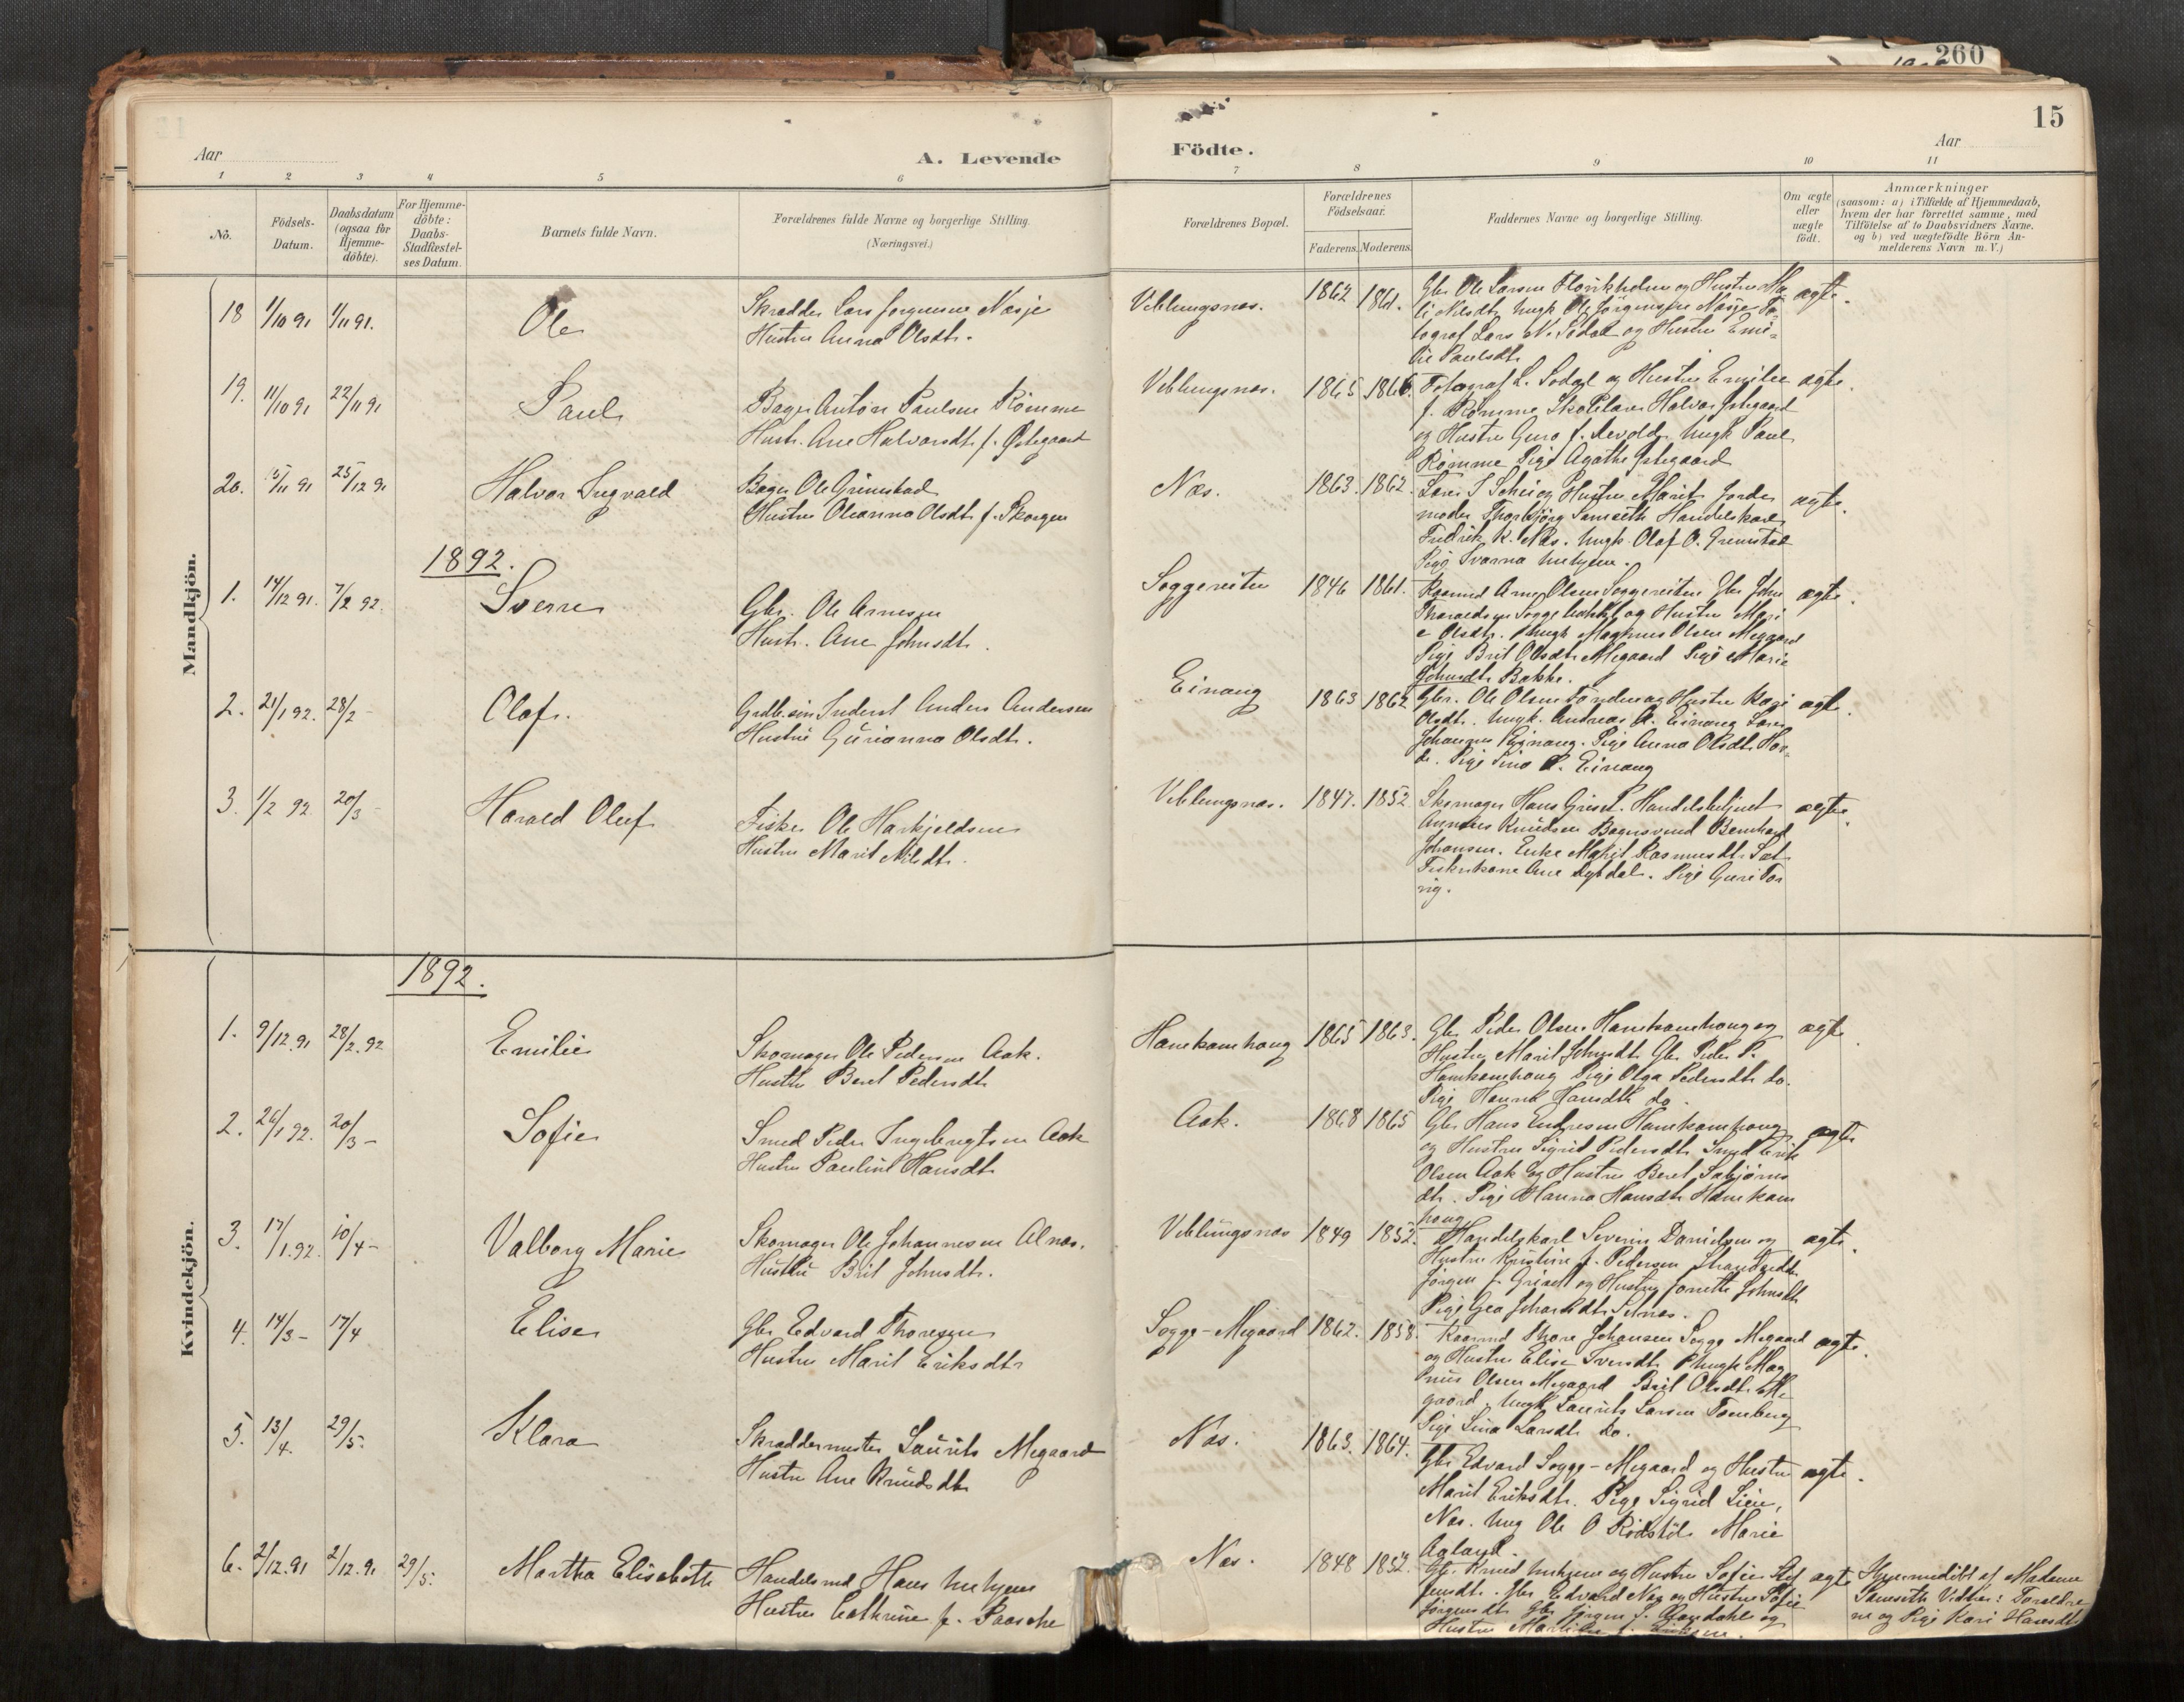 260
15
Aar
A. Levende
Födte.
Aar
1 2 3 4 5 6 7 8 9 10 11
No.
Födsels-
Datum.
Daabsdatum
(ogsaa for
Hjemme-
döbte).
For Hjemme-
döbte:
Daabs-
Stadfæstel-
ses Datum.
Barnets fulde Navn.
Forældrenes fulde Navne og borgerlige Stilling.
(Næringsvei.)
Forældrenes Bopæl.
Forældrenes
Födselsaar.
Faderens. Moderens.
Faddernes Navne og borgerlige Stilling.
Om ægte
eller
uægte
födt.
Anmærkninger
(saasom: a) i Tilfælde af Hjemmedaab,
hvem der har forrettet samme, med
Tilföielse af to Daabsvidners Navne.
og b) ved uægtefödte Börn An-
melderens Navn m. V.)
Mandkjön.
18 1/10 91 1/11 91. Ole
Skrædder Lars Jörgensen Næsje
Hustru Anna Olsdtr.
Veblungsnæs. 1862 1861.
Gbr. Ole Larsen og Hustru Ma
Ungk. Ole Jörgensen Næsje Fo-
tograf Lars N. Sødal og Hustru Emi-
lie Paulsdtr.
ægte.
19. 11/10 91 22/11 91 Paul
Bager Anton Paulsen Römme
Hustr. Ane Halvorsdtr. f. Østegaard
Veblungsnæs. 1865 1866.
Fotograf L. Sødal og Hustru Emilie
f. Römme Halvor Østegaard
og Hustru Guro f. Ungk Paul
Römme Pige Agathe Østegaard
ægte.
20. 15/11 91 25/12 91 Halvor Ingvald
Bager Ole Grimstad
Hustru Oleanna Olsdtr. f. Skorgen
Næs. 1863. 1862.
og Hustru Marit Jorde
moder Thorbjörg Samseth Handelskarl
Fredrik K. Næs. Ungk. Olaf O. Grimstad
Pige
ægte.
1892.
1. 14/12 91. 7/2 92. Sverre
Gbr. Ole Arnesen
Hustr. Ane Johnsdtr.
Soggereiten 1846 1861.
Kaarmd Arne Olsen Soggereiten Gbr John
og Hustru Mari
e Olsdtr. Ungk Magnus Olsen Megaard
Pige Brit Olsdtr Megaard Pige Marie
Johnsdtr Bakke.
ægte.
2. 21/1 92. 28/2 - Olaf.
Anders Andersen
Hustru Gurianna Olsdtr.
Einang 1863 1862
Gbr. Ole Olsen og Hustru Kari
Olsdtr. Ungk. Andreas A. Einang
Johannes Einang. Pige Anna Olsdtr. Hov-
de. Pige Sina P. Einang
ægte.
3. 1/2 92 20/3 - Harald Oluf
Fisker Ole Haskjeldsen
Hustru Marit Nilsdtr.
Veblungsnæs. 1847. 1852.
Skomager Hans Griset. Handelsbetjent
Anders Knudsen Bagersvend Bernhard
Johansen. Enke Marit Rasmusdtr. Sæt
Fiskerkone Ane . Pige Guri Tor
vig.
ægte.
Kvindekjön.
1892.
1. 9/12.91 28/2.92 Emilie
Skomager Ole Pedersen Aak.
Hustru Beret Pedersdtr
Hanekamhoug 1865 1863.
Gbr Peder Olsen Hanekamhoug og
Hustru Marit Johnsdtr Gbr Peder P.
Hanekamhoug Pige Olga Pedersdtr do.
Pige Hanna Hansdtr do.
ægte
2. 26/1 92. 20/3 - Sofie
Smed Peder Ingebrigtsen Aak
Hustru Pauline Hansdtr
Aak. 1868 1865
Gbr Hans Endresen Hanekamhoug
og Hustru Sigrid Pedersdtr. Smed Erik
Olsen Aak og Hustru Beret
dtr. Pige Hanna Hansdtr Hanekam
houg
ægte
3. 17/1.92. 10/4 - Valborg Marie
Skomager Ole Johannesen Alnæs.
Hustru Brit Johnsdtr.
Veblungsnæs 1849 1852.
Handelskarl Severin Danielsen og
Hustru Kristine f. Pedersen
Jörgen J. Griset og Hustru Jonette Johnsdtr
Pige Gea
ægte.
4. 14/3 - 17/4 Elise
Gbr Edvard Thoresen
Hustru Marit Eriksdtr
Sogge-Megaard 1862. 1858.
Kaarmd Thore Johansen Sogge Megaard
og Hustru Elise Svendtr Ungk Mag
nus Olsen Megaard Brit Olsdtr Me
gaard. Ungk Laurits Larsen Tomberg
Pige Lina Larsdtr do.
ægte.
5. 13/4. 29/5. Klara
Skræddermester Laurits Megaard
Hustru Ane Knudsdtr
Næs. 1863. 1864.
Gbr Edvard Sogge-Megaard og Hustru
Marit Eriksdtr. Pige Sigrid Lien,
Næs. Ung Ole O Rödstöl Marie
Aaland.
ægte.
6. 2/12.91 2/12.91 29/5. Martha Elisabeth
Handelsmd Hans Unhjem
Hustru Cathrine f. Paasche
Næs. 1848 1852.
Gbr. Knud Unhjem og Hustru Sofie
Gbr Edvard Næs og Hustru Sofie
Jörgensdtr Gbr Jörgen og
Hustru
ægte
Hjemmedöbt af Madame
Samseth Vidner: Forældre
ne og Pige Kari Hansdtr